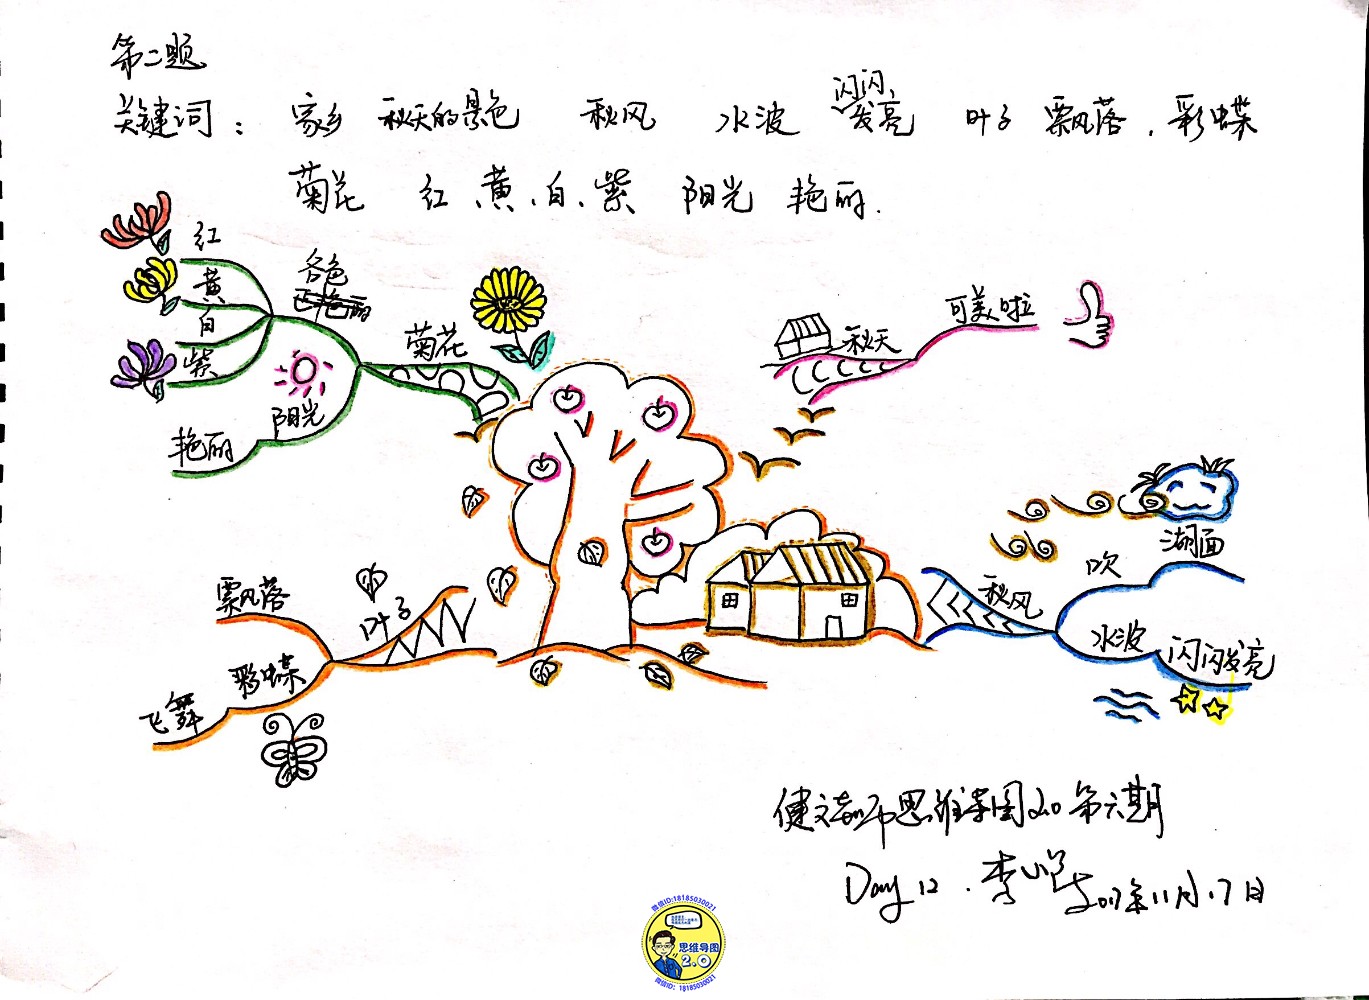 第二题
关键词： 家乡 秋天的景色 秋风 水波 闪闪发亮 叶子 飘落、彩蝶
菊花 红、黄、白、紫 阳光 艳丽.
红
黄
白
紫
各色
菊花
阳光
艳丽
秋天
可美啦
湖面
秋风
吹
水波
闪闪发亮
叶子
飘落
彩蝶
飞舞
思维导图2.0第六期
Day 12 .
2017年11月17日
微信ID:18185030021
思维导图
2.0
微信ID: 18185030021